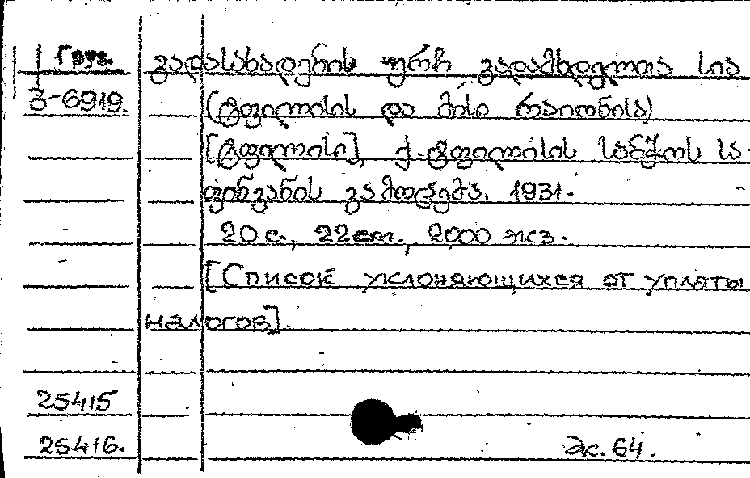 Груз. გადასახადების ვერ გადამხდელთა სია
გ-6919. (ტფილისის და მისი რაიონისა)
[ტფილისი], ქ. ტფილისის საბჭოს სა-
ფინგანის გამოცემა. 1931.
20 с., 22 cm., 2000 экз.
[Список уклоняющихся от уплаты
налогов]
25415
25416. эк. 64.